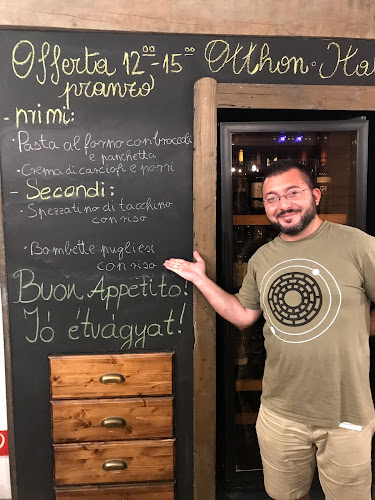 Offerta 12⁰⁰-15⁰⁰
pranzo
Otthon·Ha
- Primi:
· Pasta al forno con broccoli
e panchetta
· Crema di carciofi e porri
- Secondi:
· Spezzatino di tacchino
con riso
· Bombette pugliesi
con riso
Buon Appetito!
Jó étvágyat!